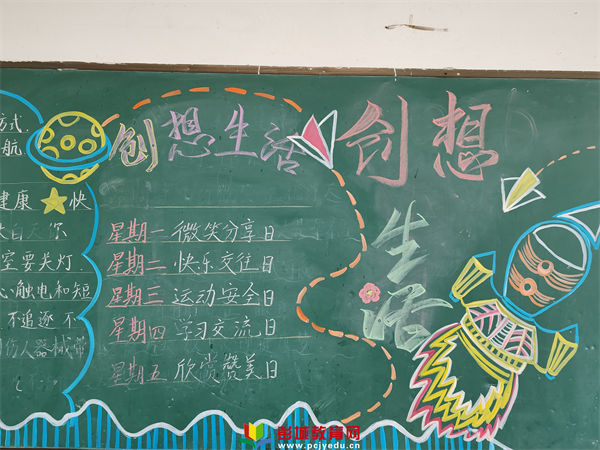 方式
航
健康 快
空要关灯
心触电和短
不追逐 不
伤人器械带
创想生活
星期一 微笑分享日
星期二 快乐交往日
星期三 运动安全日
星期四 学习交流日
星期五 欣赏赞美日
创想
生活
彭城教育网
www.pcjyedu.cn